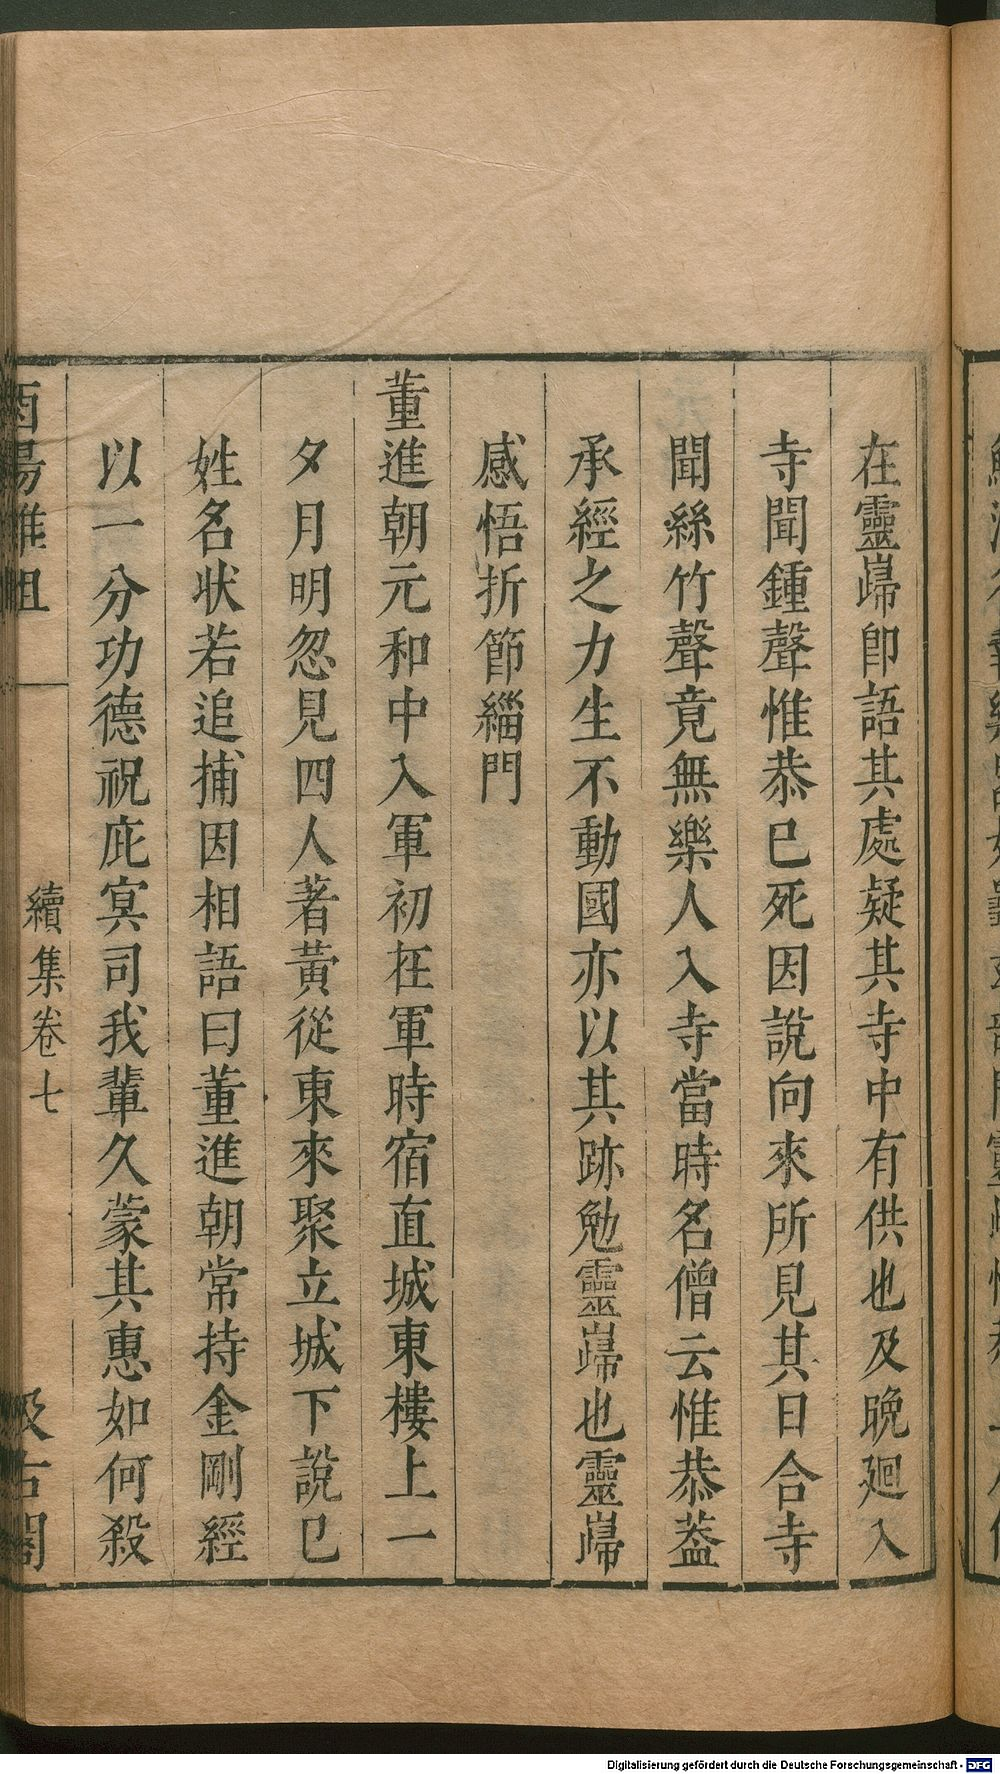 在靈歸卽語其處疑其寺中有供也及晚廻入
寺聞鍾聲惟恭巳死因說向來所見其日合寺
聞絲竹聲竟無樂人入寺當時名僧云惟恭葢
承經之力生不動國亦以其跡勉靈歸也靈歸
感悟折節緇門
董進朝元和中入軍初在軍時宿直城東樓上一
夕月明忽見四人著黄從東來聚立城下說巳
姓名状若追捕因相語曰董進朝常持金剛經
以一分功德祝庇冥司我輩久蒙其惠如何殺
酉陽雜俎
續集卷七
汲古閣
Digitalisierung gefördert durch die Deutsche Forschungsgemeinschaft - DFG